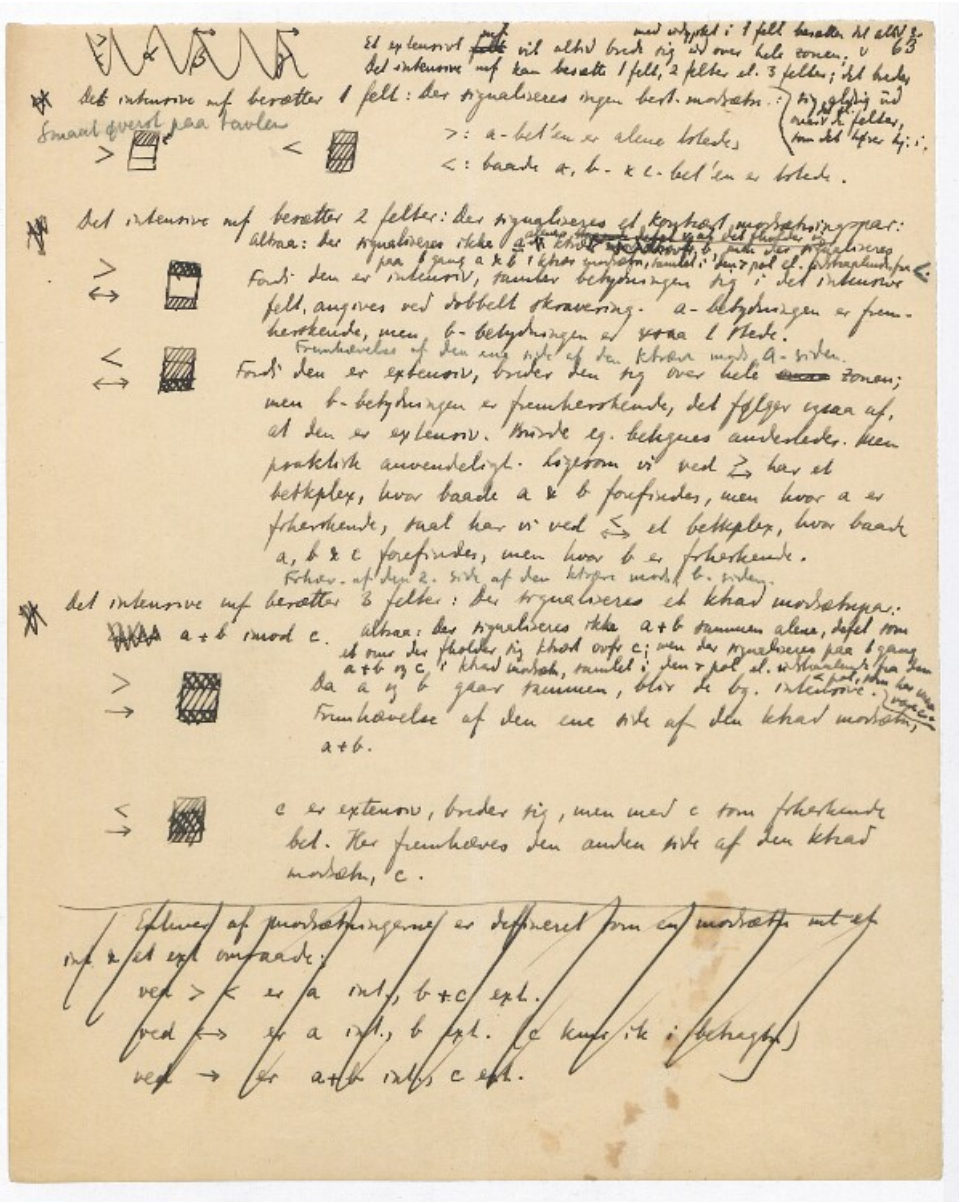 63
Et extensivt mf. vil altid brede sig ud over hele zonen;
Det intensive mf kan besætte 1 felt, 2 felter el. 3 felter; det beder
Det intensive mf besætter 1 felt: Der signaliseres ingen best. modsætn.:
sig aldrig ud
over de felter,
Smaat øverst paa tavlen
> <
>: a-bet'en er alene tilstede,
<: baade a, b- & c-bet'en er tilstede.
Det intensive mf besætter 2 felter: Der signaliseres et kontrært modsætningspar:
Altsaa: der signaliseres ikke
>
↔
Fordi den er intensiv, samler betydningen sig i det intensive
felt, angives ved dobbelt skravering. a-betydningen er frem-
herskende, men b-betydningen er ogsaa t stede.
Fremhævelse af den ene side af den ktrære mods, a-siden.
<
↔
Fordi den er extensiv, breder den sig over hele zonen;
men b-betydningen er fremherskende, det følger ogsaa af,
at den er extensiv. Burde eg. betegnes anderledes. Men
praktisk anvendeligt. Ligesom vi ved > ↔ har et
betkplex, hvor baade a & b forefindes, men hvor a er
frherskende, saal har vi ved < ↔ et betkplex, hvor baade
a, b & c forefindes, men hvor b er frherskende.
Frhæv. af den 2. side af den ktrære mods, b-siden.
Det intensive mf besætter 3 felter: Der signaliseres et ktrad modsætnpar:
a+b imod c. Altsaa: der signaliseres ikke a+b sammen alene,
men der signaliseres paa 1 gang
a+b og c, i ktrad modsætn, samlet i den + pol el.
>
→
Da a og b gaar sammen, blir de bg. intensive.
Fremhævelse af den ene side af den ktrad modsætn,
a+b.
<
→
c er extensiv, breder sig, men med c som frherskende
bet. Her fremhæves den anden side af den ktrad
modsætn, c.
Enhver af modsætningerne er defineret som en modsætn ml et
int & et ext omraade:
ved > < er a int., b+c ext.
ved ↔ er a int., b ext. (c kmr ik i betragtn)
ved → er a+b int., c ext.